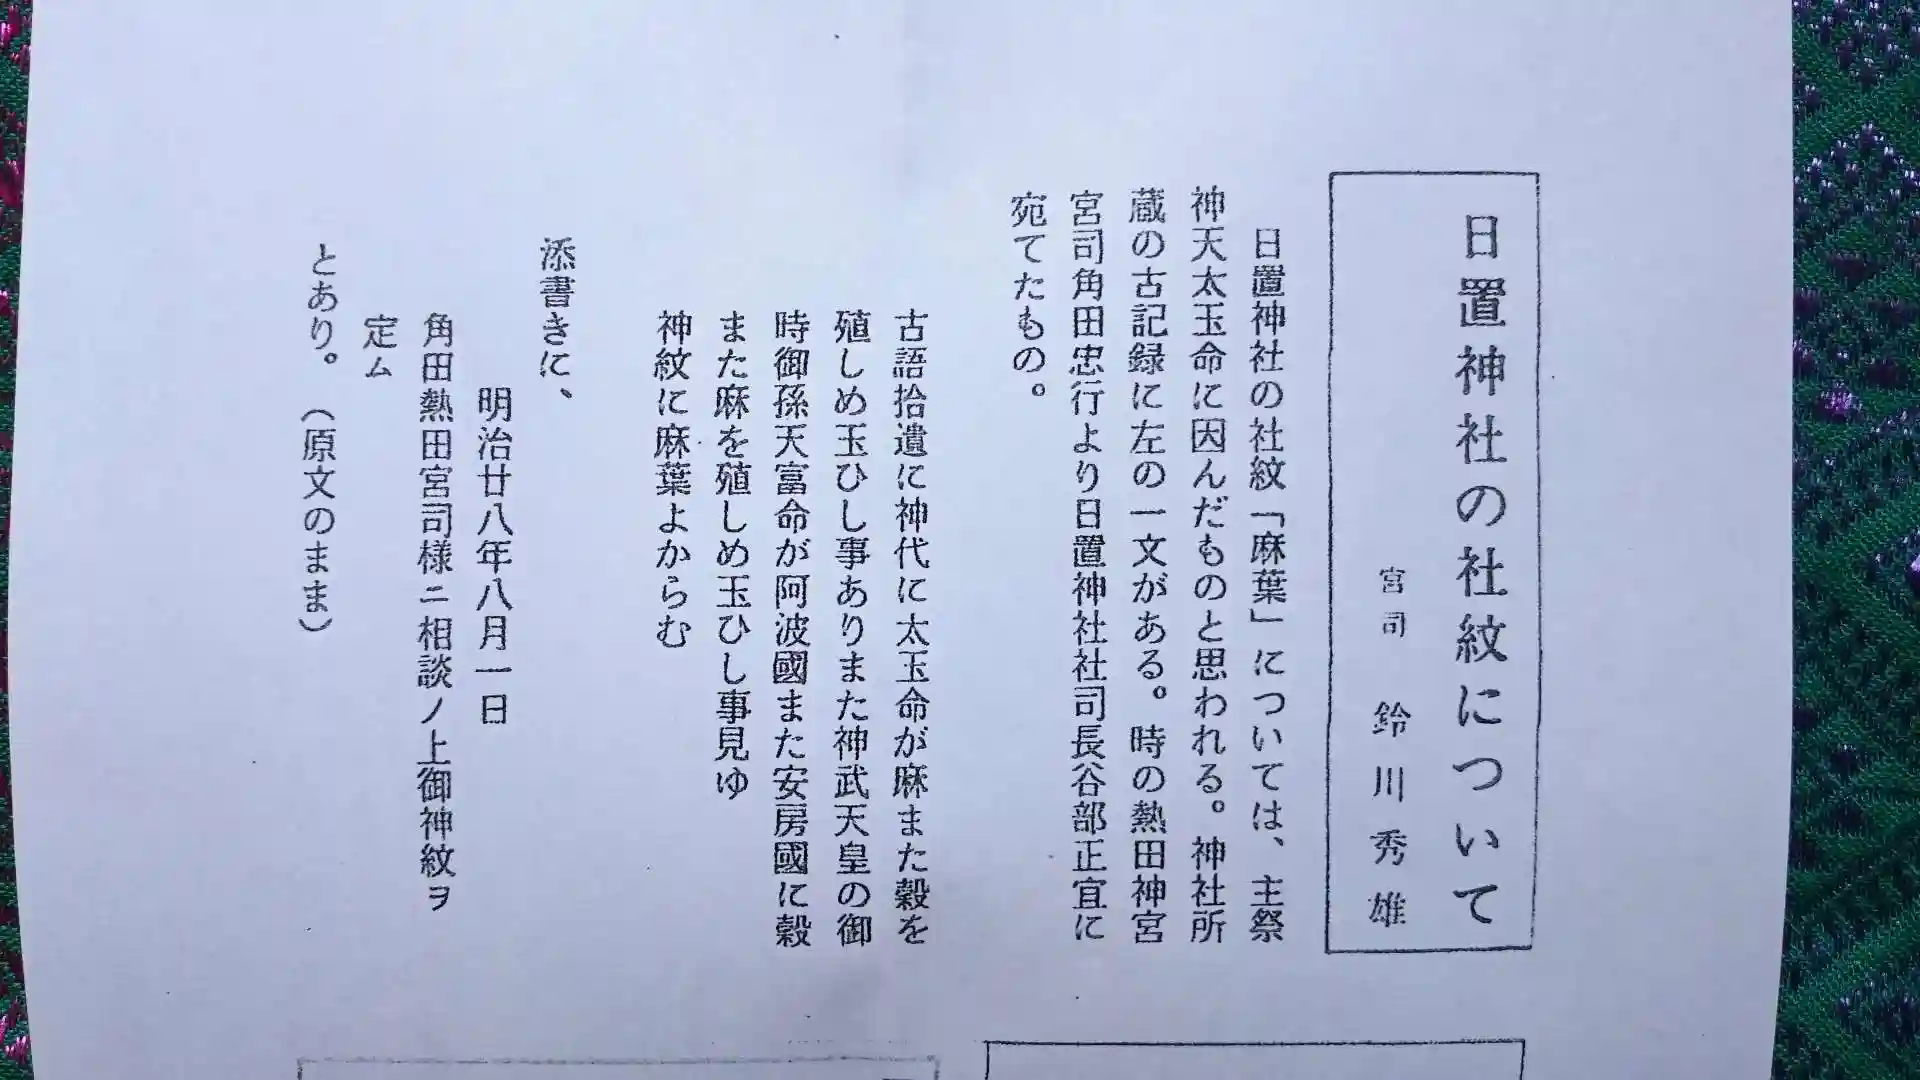 日置神社の社紋について
宮司　鈴川秀雄
日置神社の社紋「麻葉」については、主祭
神天太玉命に因んだものと思われる。神社所
蔵の古記録に左の一文がある。時の熱田神宮
宮司角田忠行より日置神社社司長谷部正宜に
宛てたもの。
古語拾遺に神代に太玉命が麻また穀を
殖しめ玉ひし事ありまた神武天皇の御
時御孫天富命が阿波國また安房國に穀
また麻を殖しめ玉ひし事見ゆ
神紋に麻葉よからむ
添書きに、
明治廿八年八月一日
角田熱田宮司様ニ相談ノ上御神紋ヲ
定ム
とあり。（原文のまま）